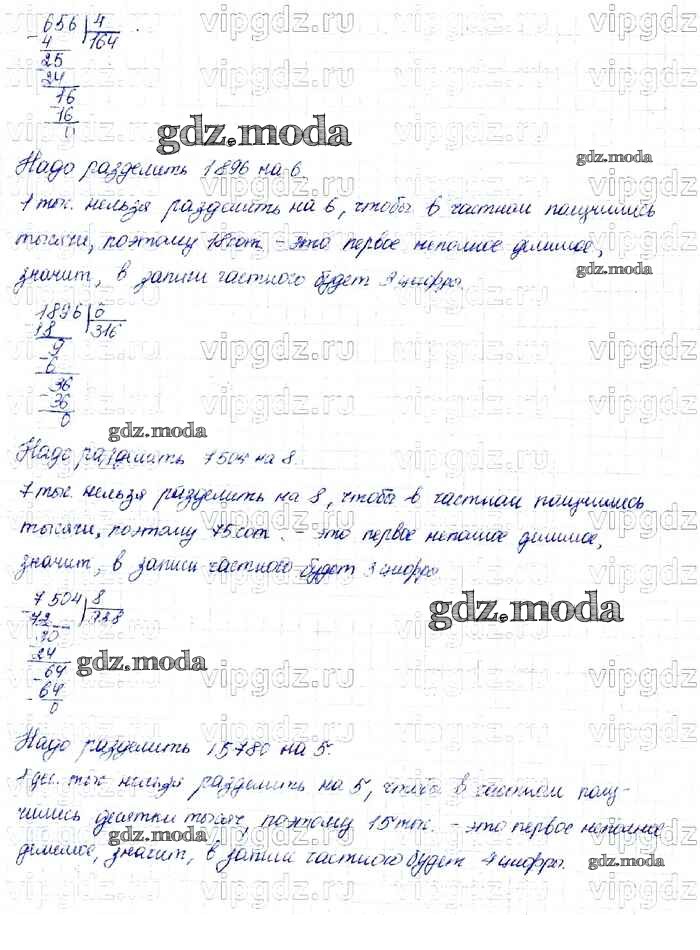 656 | 4
4 164
25
24
16
16
0
gdz.moda
Надо разделить 1896 на 6
1 тыс. нельзя разделить на 6, чтобы в частном получились
тысячи, поэтому 18 сот. - это первое неполное делимое,
значит, в записи частного будет 3 цифры.
1896 | 6
18 316
9
6
36
36
0
gdz.moda
Надо разделить 7504 на 8.
7 тыс. нельзя разделить на 8, чтобы в частном получились
тысячи, поэтому 75 сот. - это первое неполное делимое,
значит, в записи частного будет 3 цифры.
7504 | 8
72
30
24
64
64
0
gdz.moda
Надо разделить 15780 на 5.
1 дес. тыс. нельзя разделить на 5, чтобы в частном полу-
чились десятки тысяч, поэтому 15 тыс. - это первое неполное
делимое, значит, в записи частного будет 4 цифры.
gdz.moda
vipgdz.ru